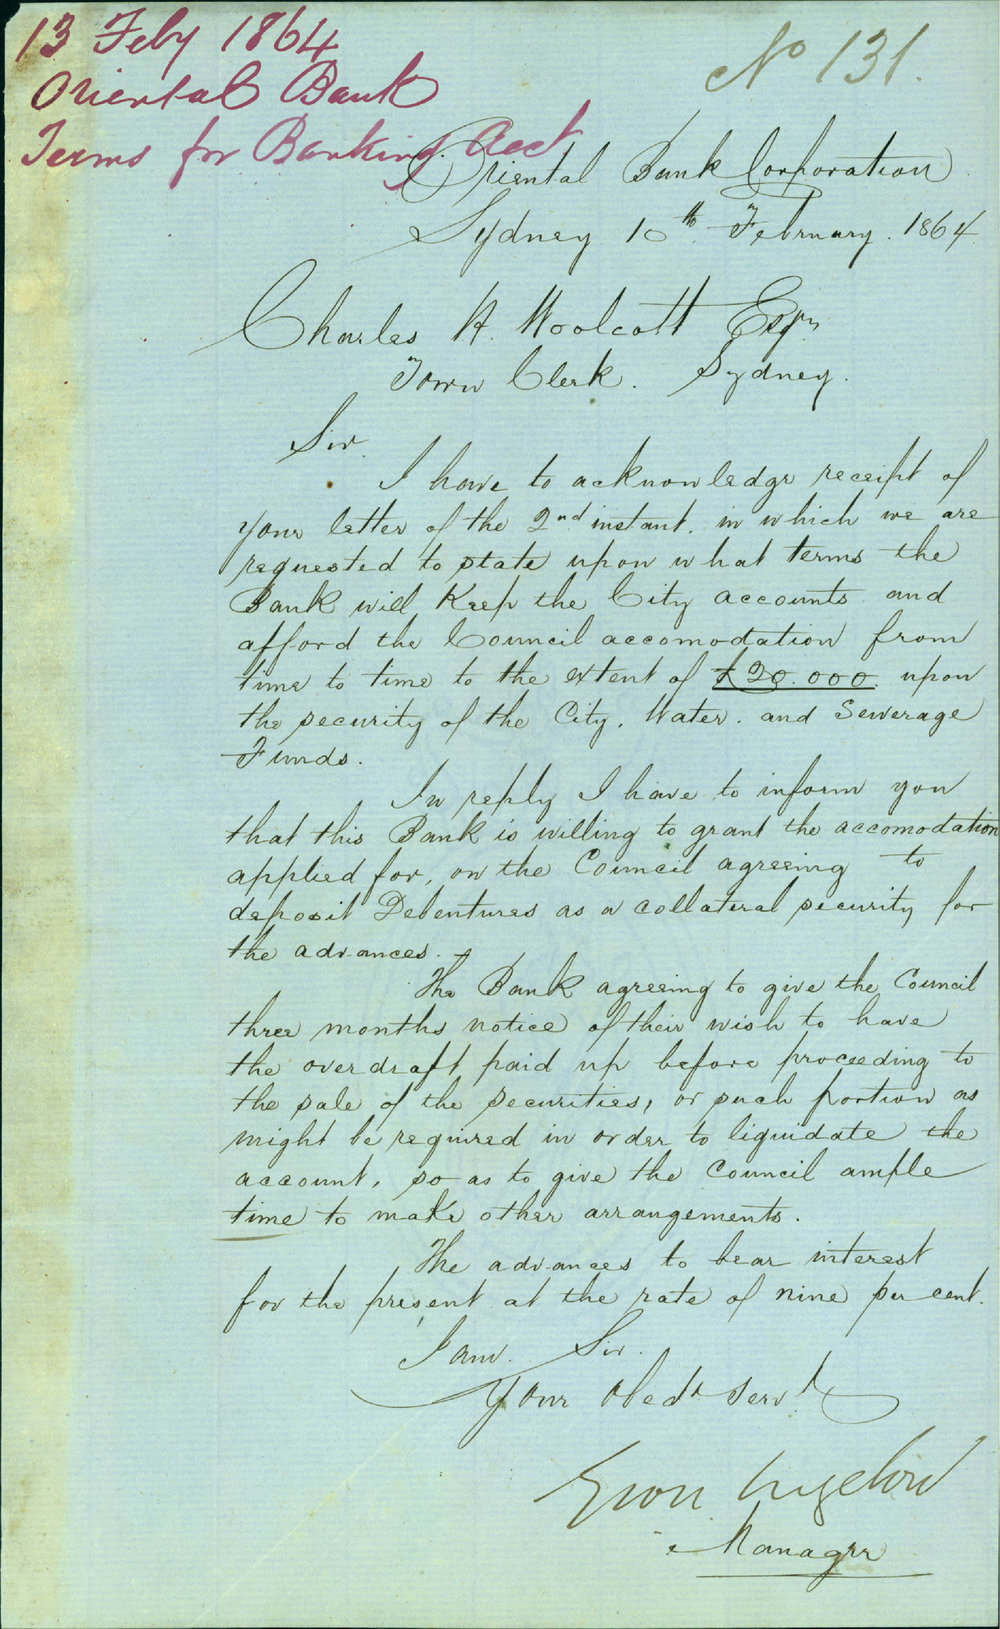 13 Feby 1864
Oriental Bank
Terms for Banking Acct
No 131.
Oriental Bank Corporation
Sydney 10th February. 1864
Charles H. Woolcott Esqr.
Town Clerk. Sydney.
Sir.
I have to acknowledge receipt of
your letter of the 2nd instant. in which we are
requested to state upon what terms the
Bank will Keep the City accounts and
afford the Council accomodation from
time to time to the extent of £20.000. upon
the security of the City, Water. and Sewerage
Funds.
In reply I have to inform you
that this Bank is willing to grant the accomodation
applied for, on the Council agreeing to
deposit Debentures as a collateral security for
the advances.
The Bank agreeing to give the Council
three months notice of their wish to have
the overdraft paid up before proceeding to
the sale of the securities, or such portion as
might be required in order to liquidate the
account, so as to give the Council ample
time to make other arrangements.
The advances to bear interest
for the present at the rate of nine per cent.
I am. Sir.
Your obedt Servt
Manager